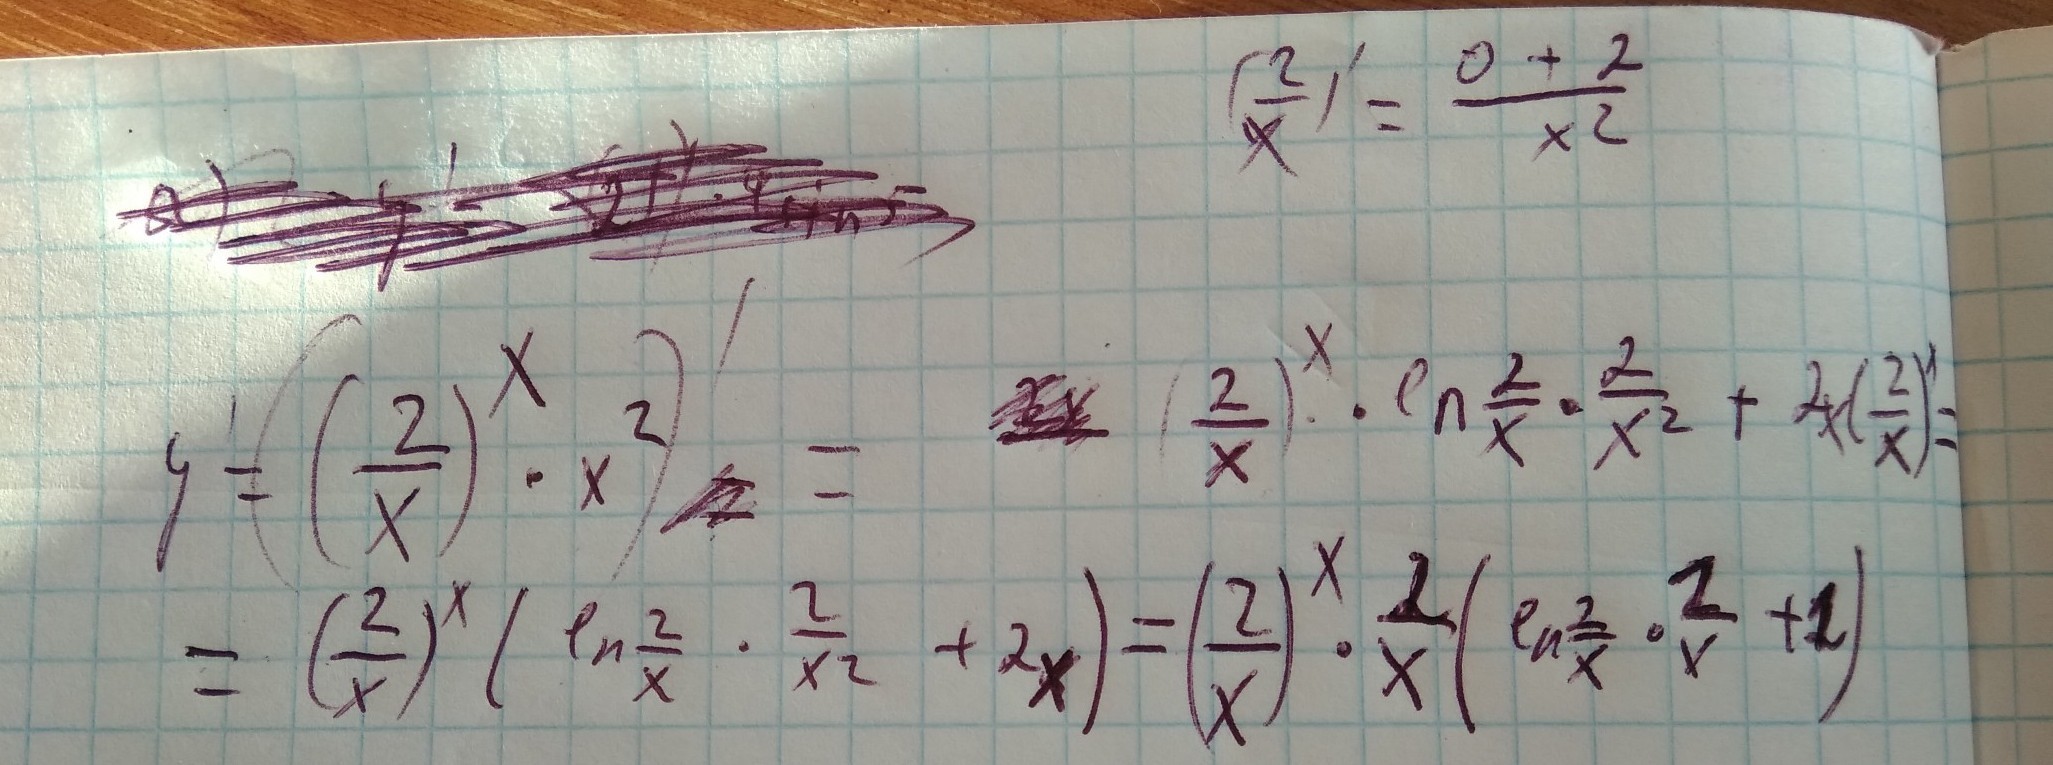 (2/x)' = (0 + 2)/x²
y' = ((2/x)^x · x²)' = (2/x)^x · ln 2/x · 2/x² + 2x(2/x)^x =
= (2/x)^x ( ln 2/x · 2/x² + 2x ) = (2/x)^x · 2/x ( ln 2/x · 2/x + 1 )